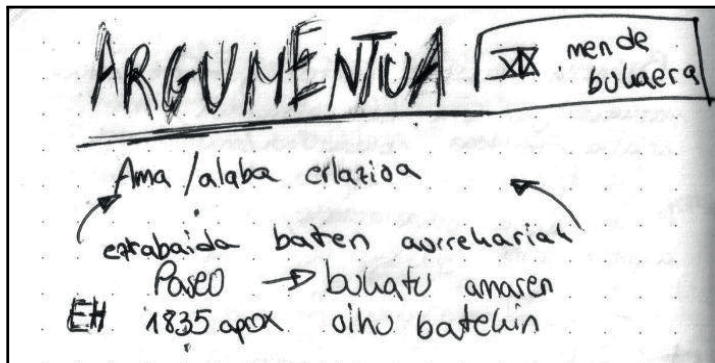 ARGUMENTUA
XIX mende
bukaera
Ama / alaba erlazioa
eztabaida baten aurrekariak
Paseo → bukatu amaren
EH 1835 apox oihu batekin